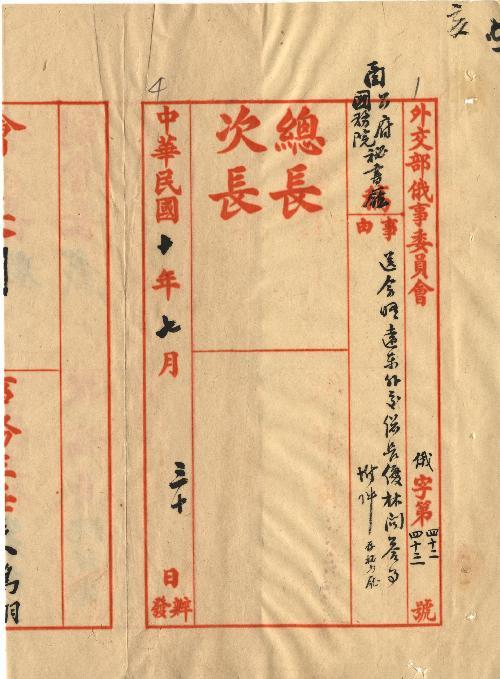 外交部俄事委員會 俄字第四十二 四十三 號
函 公府 國務院 祕書廳
事由 送會晤遠東外交總長優林問答事
附件
總長
次長
中華民國十年七月三十日辦發
會